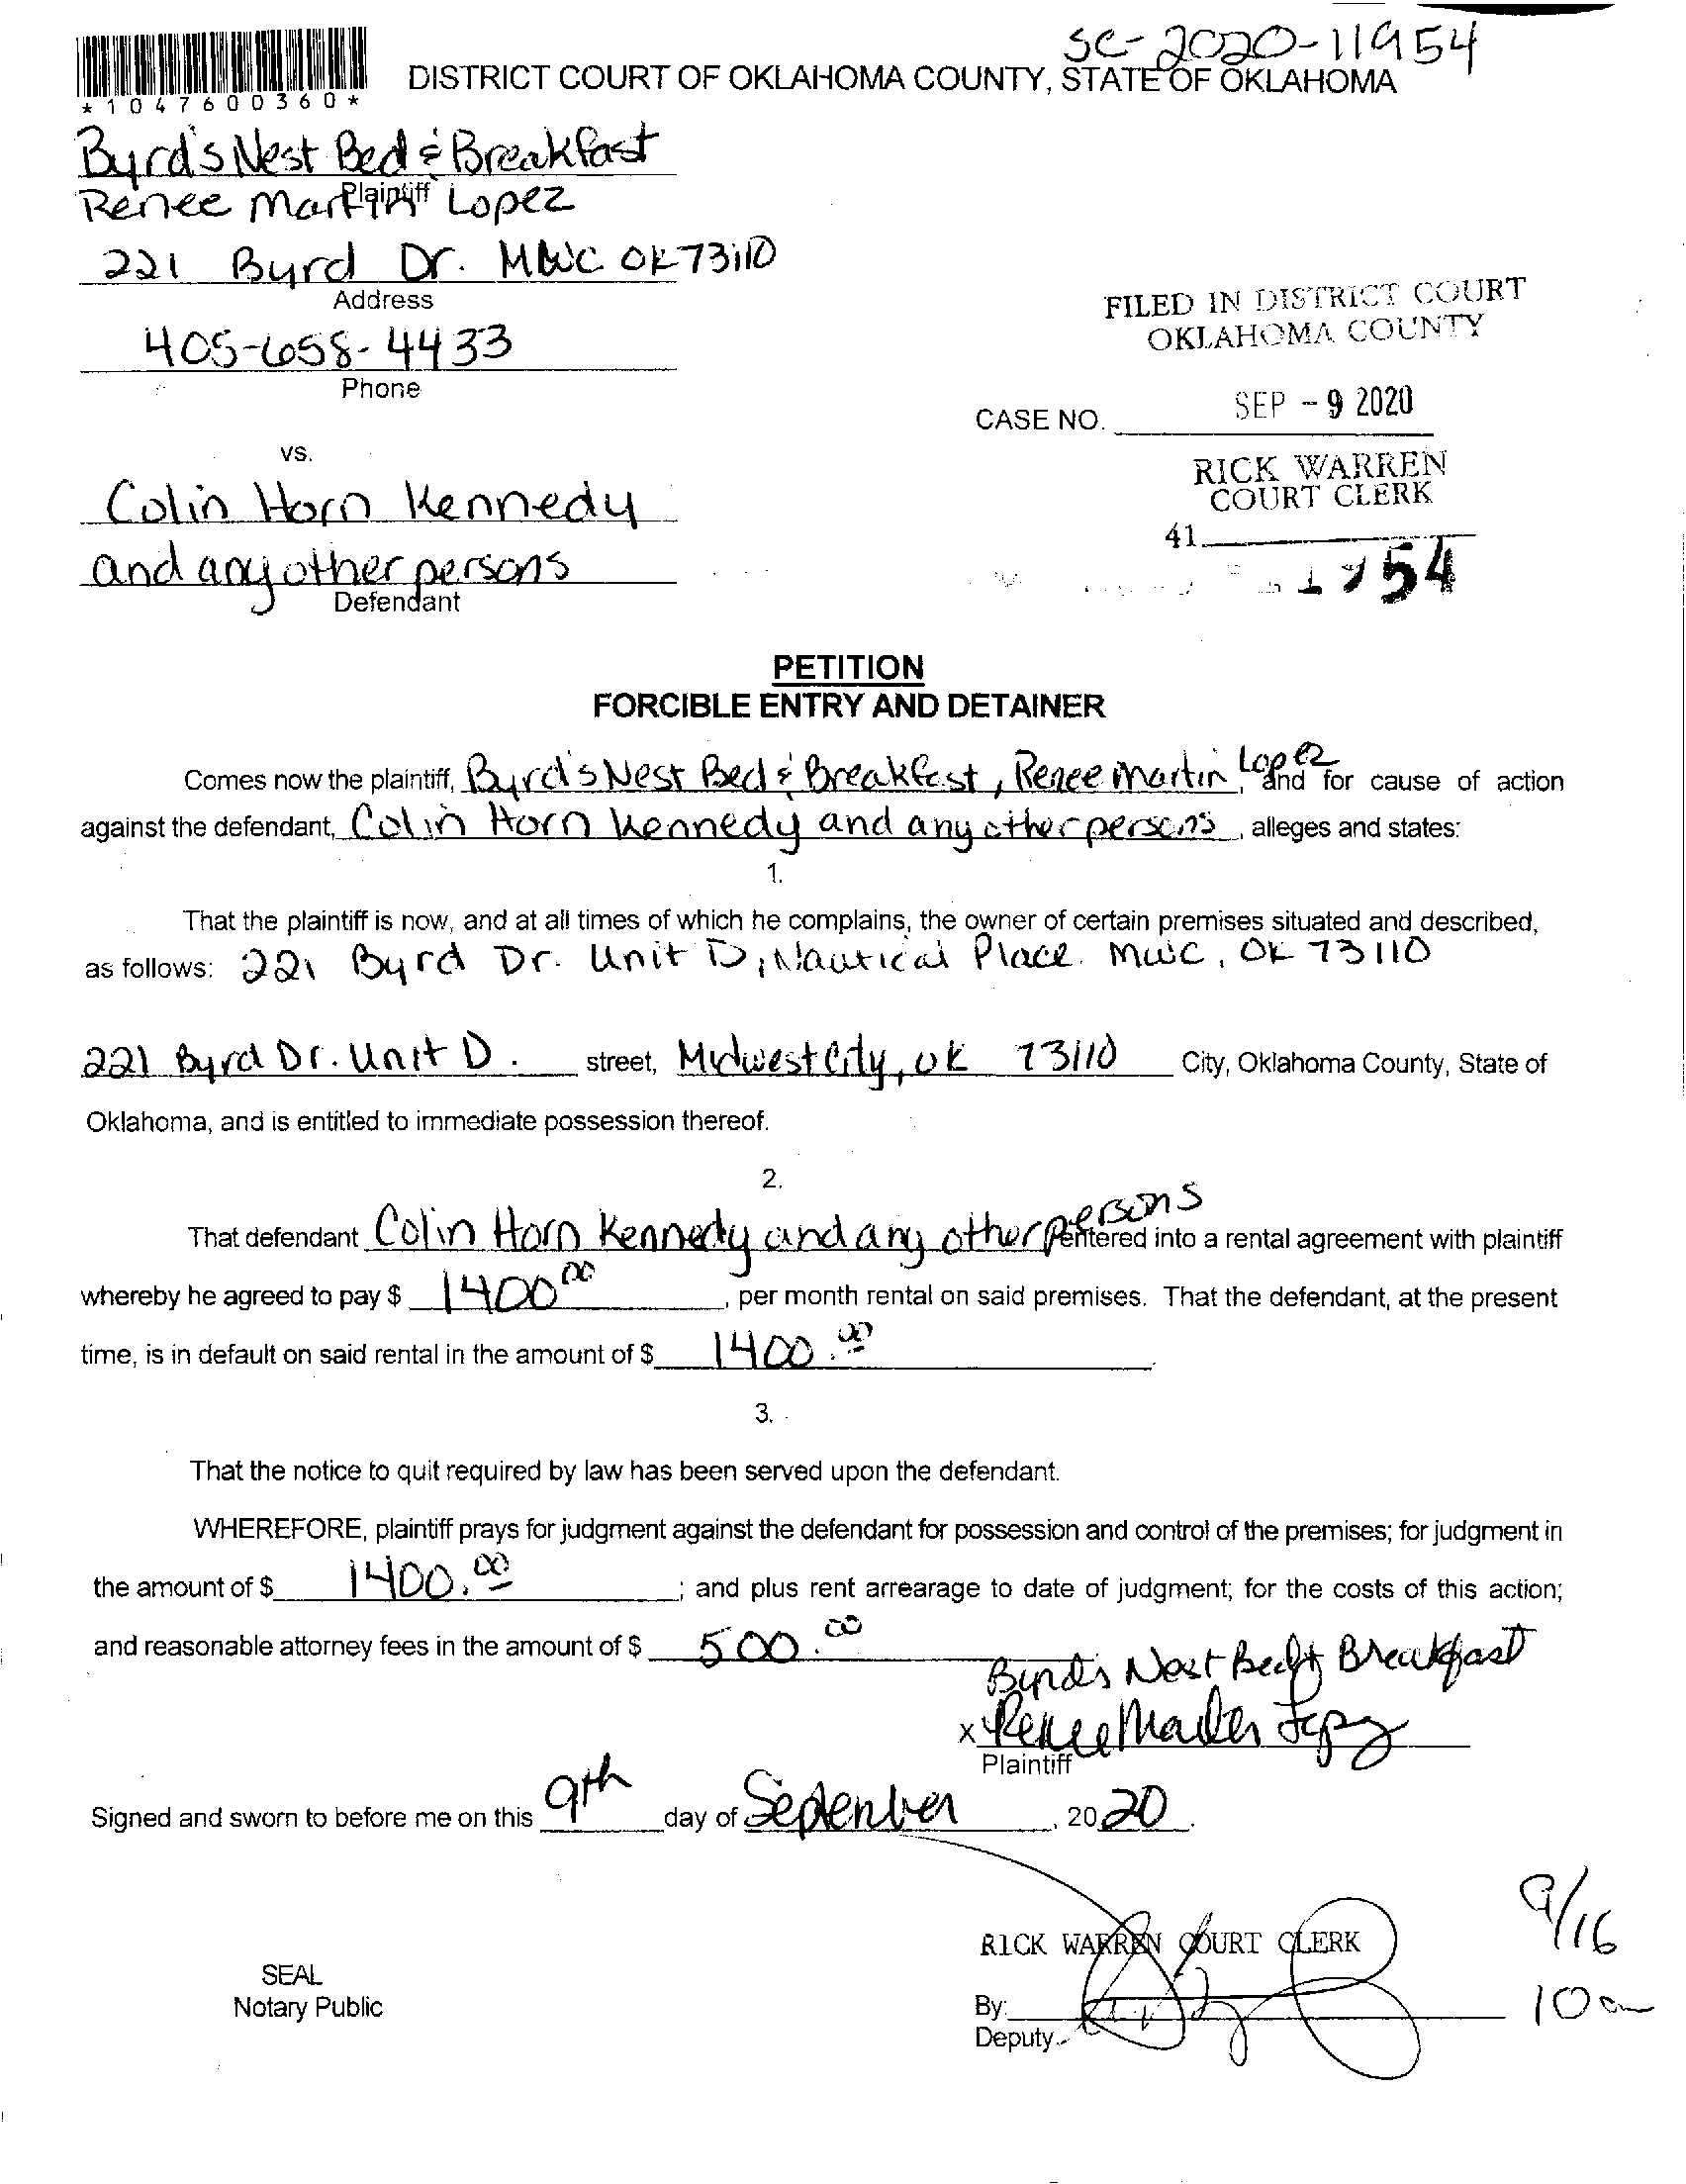 SC-2020-11954
DISTRICT COURT OF OKLAHOMA COUNTY, STATE OF OKLAHOMA
*1047600360*
Byrd's Nest Bed & Breakfast
Plaintiff
Renee Martin Lopez
221 Byrd Dr. MWC OK 73110
Address
405-658-4433
Phone
FILED IN DISTRICT COURT
OKLAHOMA COUNTY
SEP - 9 2020
CASE NO.
RICK WARREN
COURT CLERK
41
vs.
Colin Horn Kennedy
and any other persons
Defendant
54
PETITION
FORCIBLE ENTRY AND DETAINER
Comes now the plaintiff, Byrd's Nest Bed & Breakfast, Renee Martin Lopez, and for cause of action
against the defendant, Colin Horn Kennedy and any other persons, alleges and states:
1.
That the plaintiff is now, and at all times of which he complains, the owner of certain premises situated and described,
as follows: 221 Byrd Dr. Unit D, Nautical Place. MWC, OK 73110
221 Byrd Dr. Unit D. street, Midwest City, OK 73110 City, Oklahoma County, State of
Oklahoma, and is entitled to immediate possession thereof.
2.
That defendant Colin Horn Kennedy and any other persons entered into a rental agreement with plaintiff
whereby he agreed to pay $ 1400 00, per month rental on said premises. That the defendant, at the present
time, is in default on said rental in the amount of $ 1400.00.
3.
That the notice to quit required by law has been served upon the defendant.
WHEREFORE, plaintiff prays for judgment against the defendant for possession and control of the premises; for judgment in
the amount of $ 1400.00; and plus rent arrearage to date of judgment; for the costs of this action;
and reasonable attorney fees in the amount of $ 500.00
Byrd's Nest Bed & Breakfast
x Renee Martin Lopez
Plaintiff
Signed and sworn to before me on this 9th day of September, 2020.
9/16
10am
RICK WARREN COURT CLERK
SEAL
Notary Public
By:
Deputy